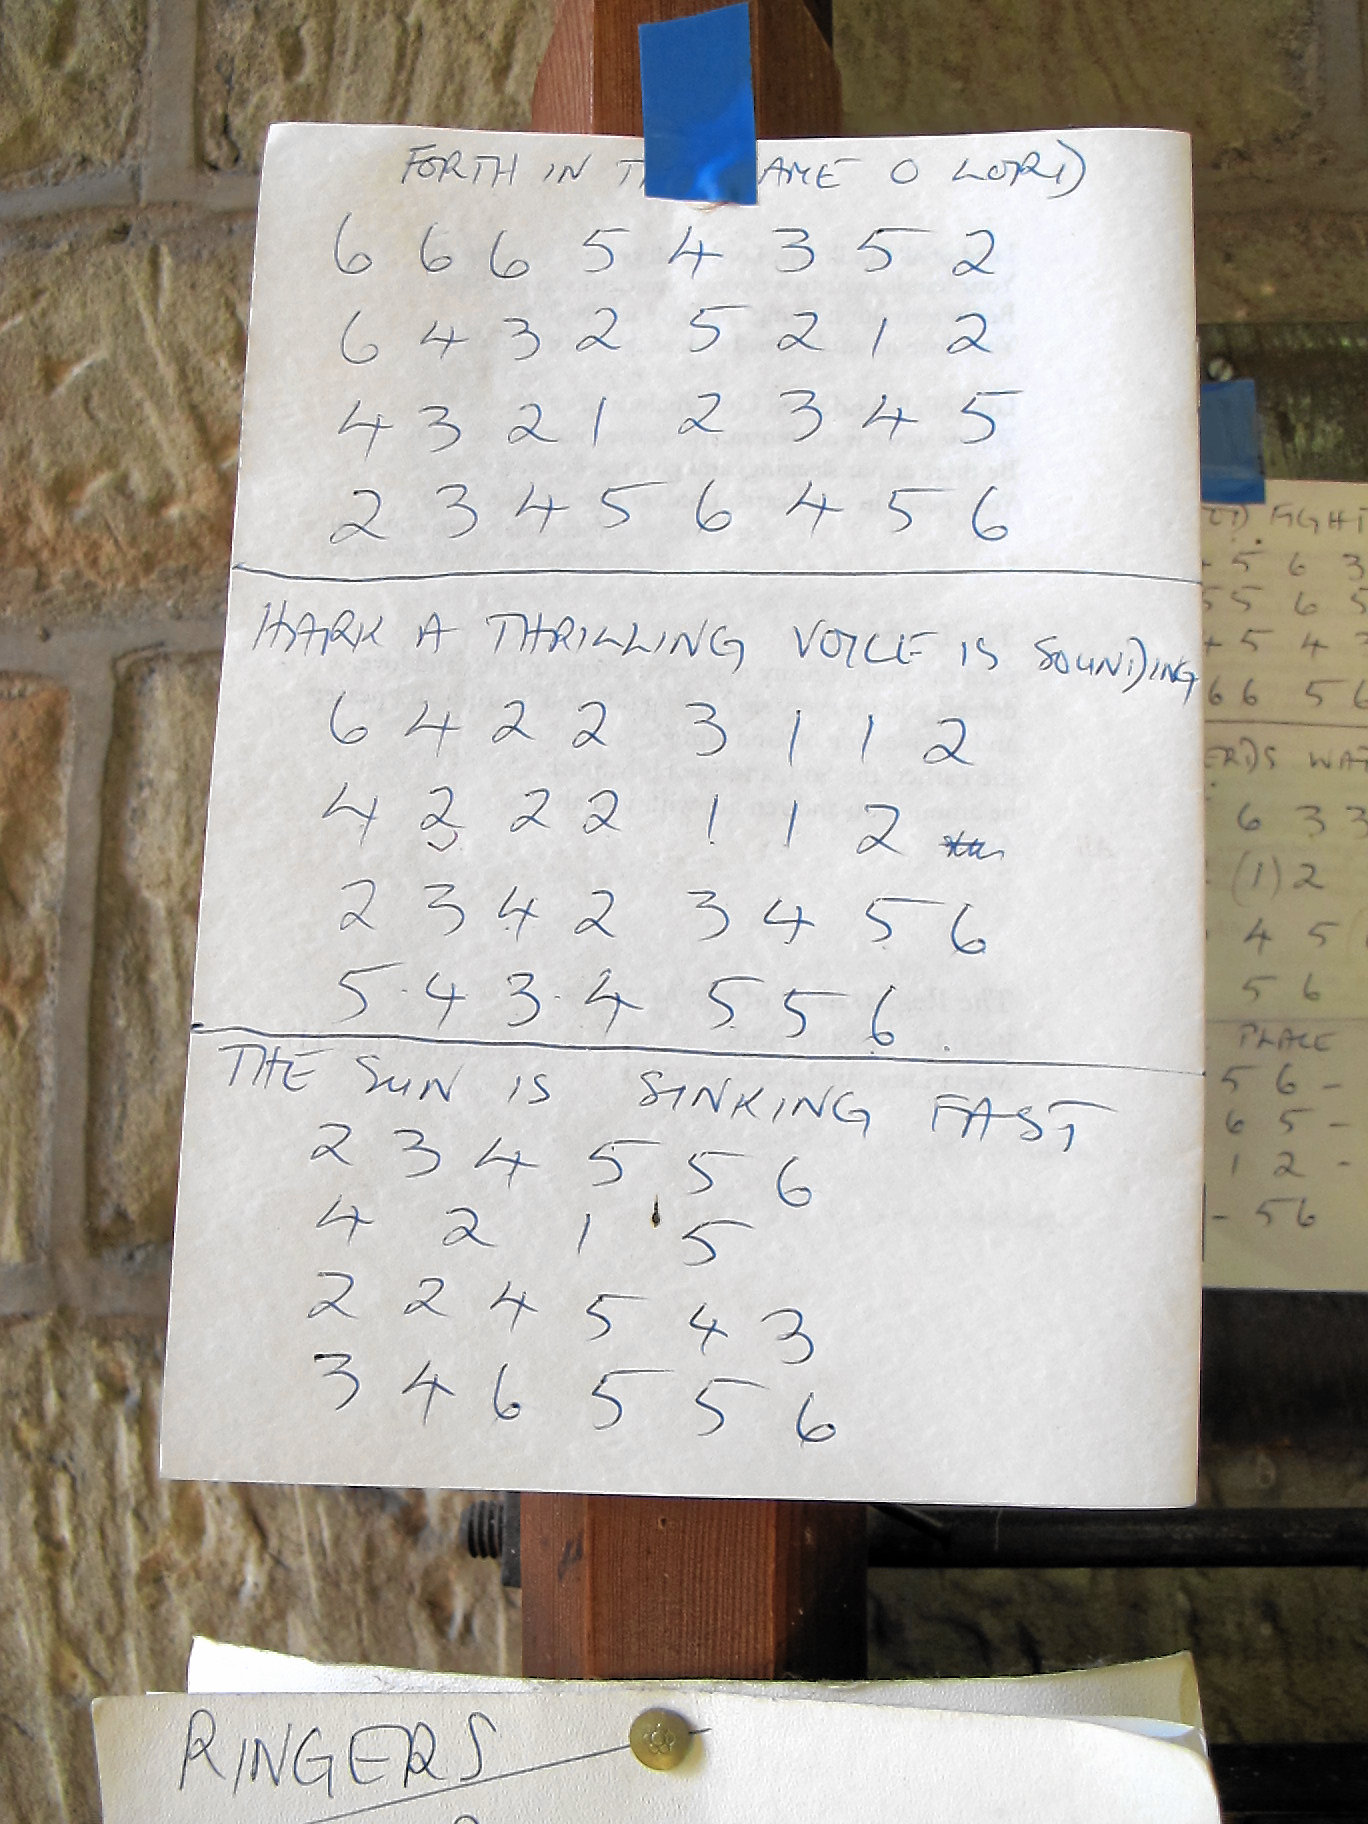 FORTH IN AME O LORD
6 6 6 5 4 3 5 2
6 4 3 2 5 2 1 2
4 3 2 1 2 3 4 5
2 3 4 5 6 4 5 6
HARK A THRILLING VOICE IS SOUNDING
6 4 2 2 3 1 1 2
4 2 2 2 1 1 2
2 3 4 2 3 4 5 6
5 4 3 4 5 5 6
THE SUN IS SINKING FAST
2 3 4 5 5 6
4 2 1 5
2 2 4 5 4 3
3 4 6 5 5 6
FIGHT
5 6 3
55 6 5
5 4
66 5 6
ERDS WAT
6 3 3
(1) 2
4 5
5 6
PLACE
5 6 -
6 5 -
1 2 -
- 56
RINGERS